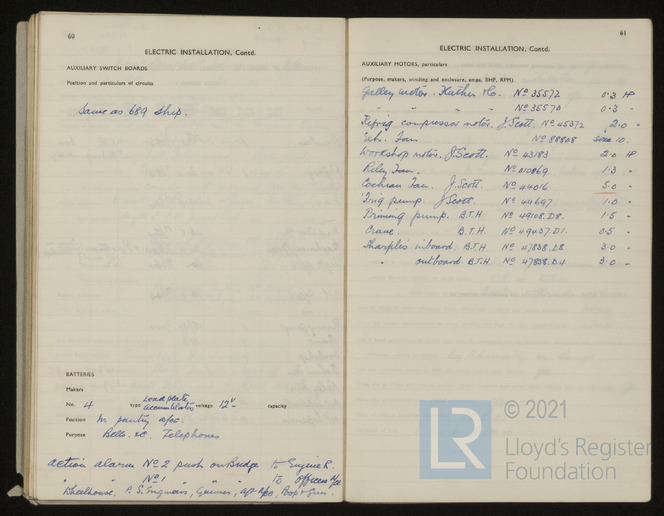 60
ELECTRIC INSTALLATION, Contd.
AUXILIARY SWITCH BOARDS
Position and particulars of circuits
Same as 689 Ship.
BATTERIES
Makers
No. 4 type Lead plate Accumulators voltage 12V capacity
Position In pantry
Purpose Bells &c. Telephones
Action alarm Nº 2 push on Bridge to Engine R.
" " Nº 1 " " to Officers
Wheelhouse, P. S. Engineers, Gunners,
61
ELECTRIC INSTALLATION, Contd.
AUXILIARY MOTORS, particulars
(Purpose, makers, winding and enclosure, amps, BHP, RPM)
Galley motor. Nº 35572 0.3 HP
" " " " Nº 35570 0.3 -
compressor motor. J. Scott. Nº 45372 2.0 -
Fan. Nº 88808 size 10.
Workshop motor. J. Scott. Nº 43183 2.0 HP
Riley Fan. Nº 010869 1.3 -
Cochran Fan. J. Scott. Nº 44016 5.0 -
pump. J. Scott. Nº 44697 1.0 -
Priming pump. B.T.H Nº 49108.D8. 1.5 -
Crane. B.T.H. Nº 49437.D1. 0.5 -
Sharples inboard. B.T.H Nº 47838.D8 3.0 -
" outboard B.T.H Nº 47838.D4 3.0 -
LR
© 2021
Lloyd's Register
Foundation